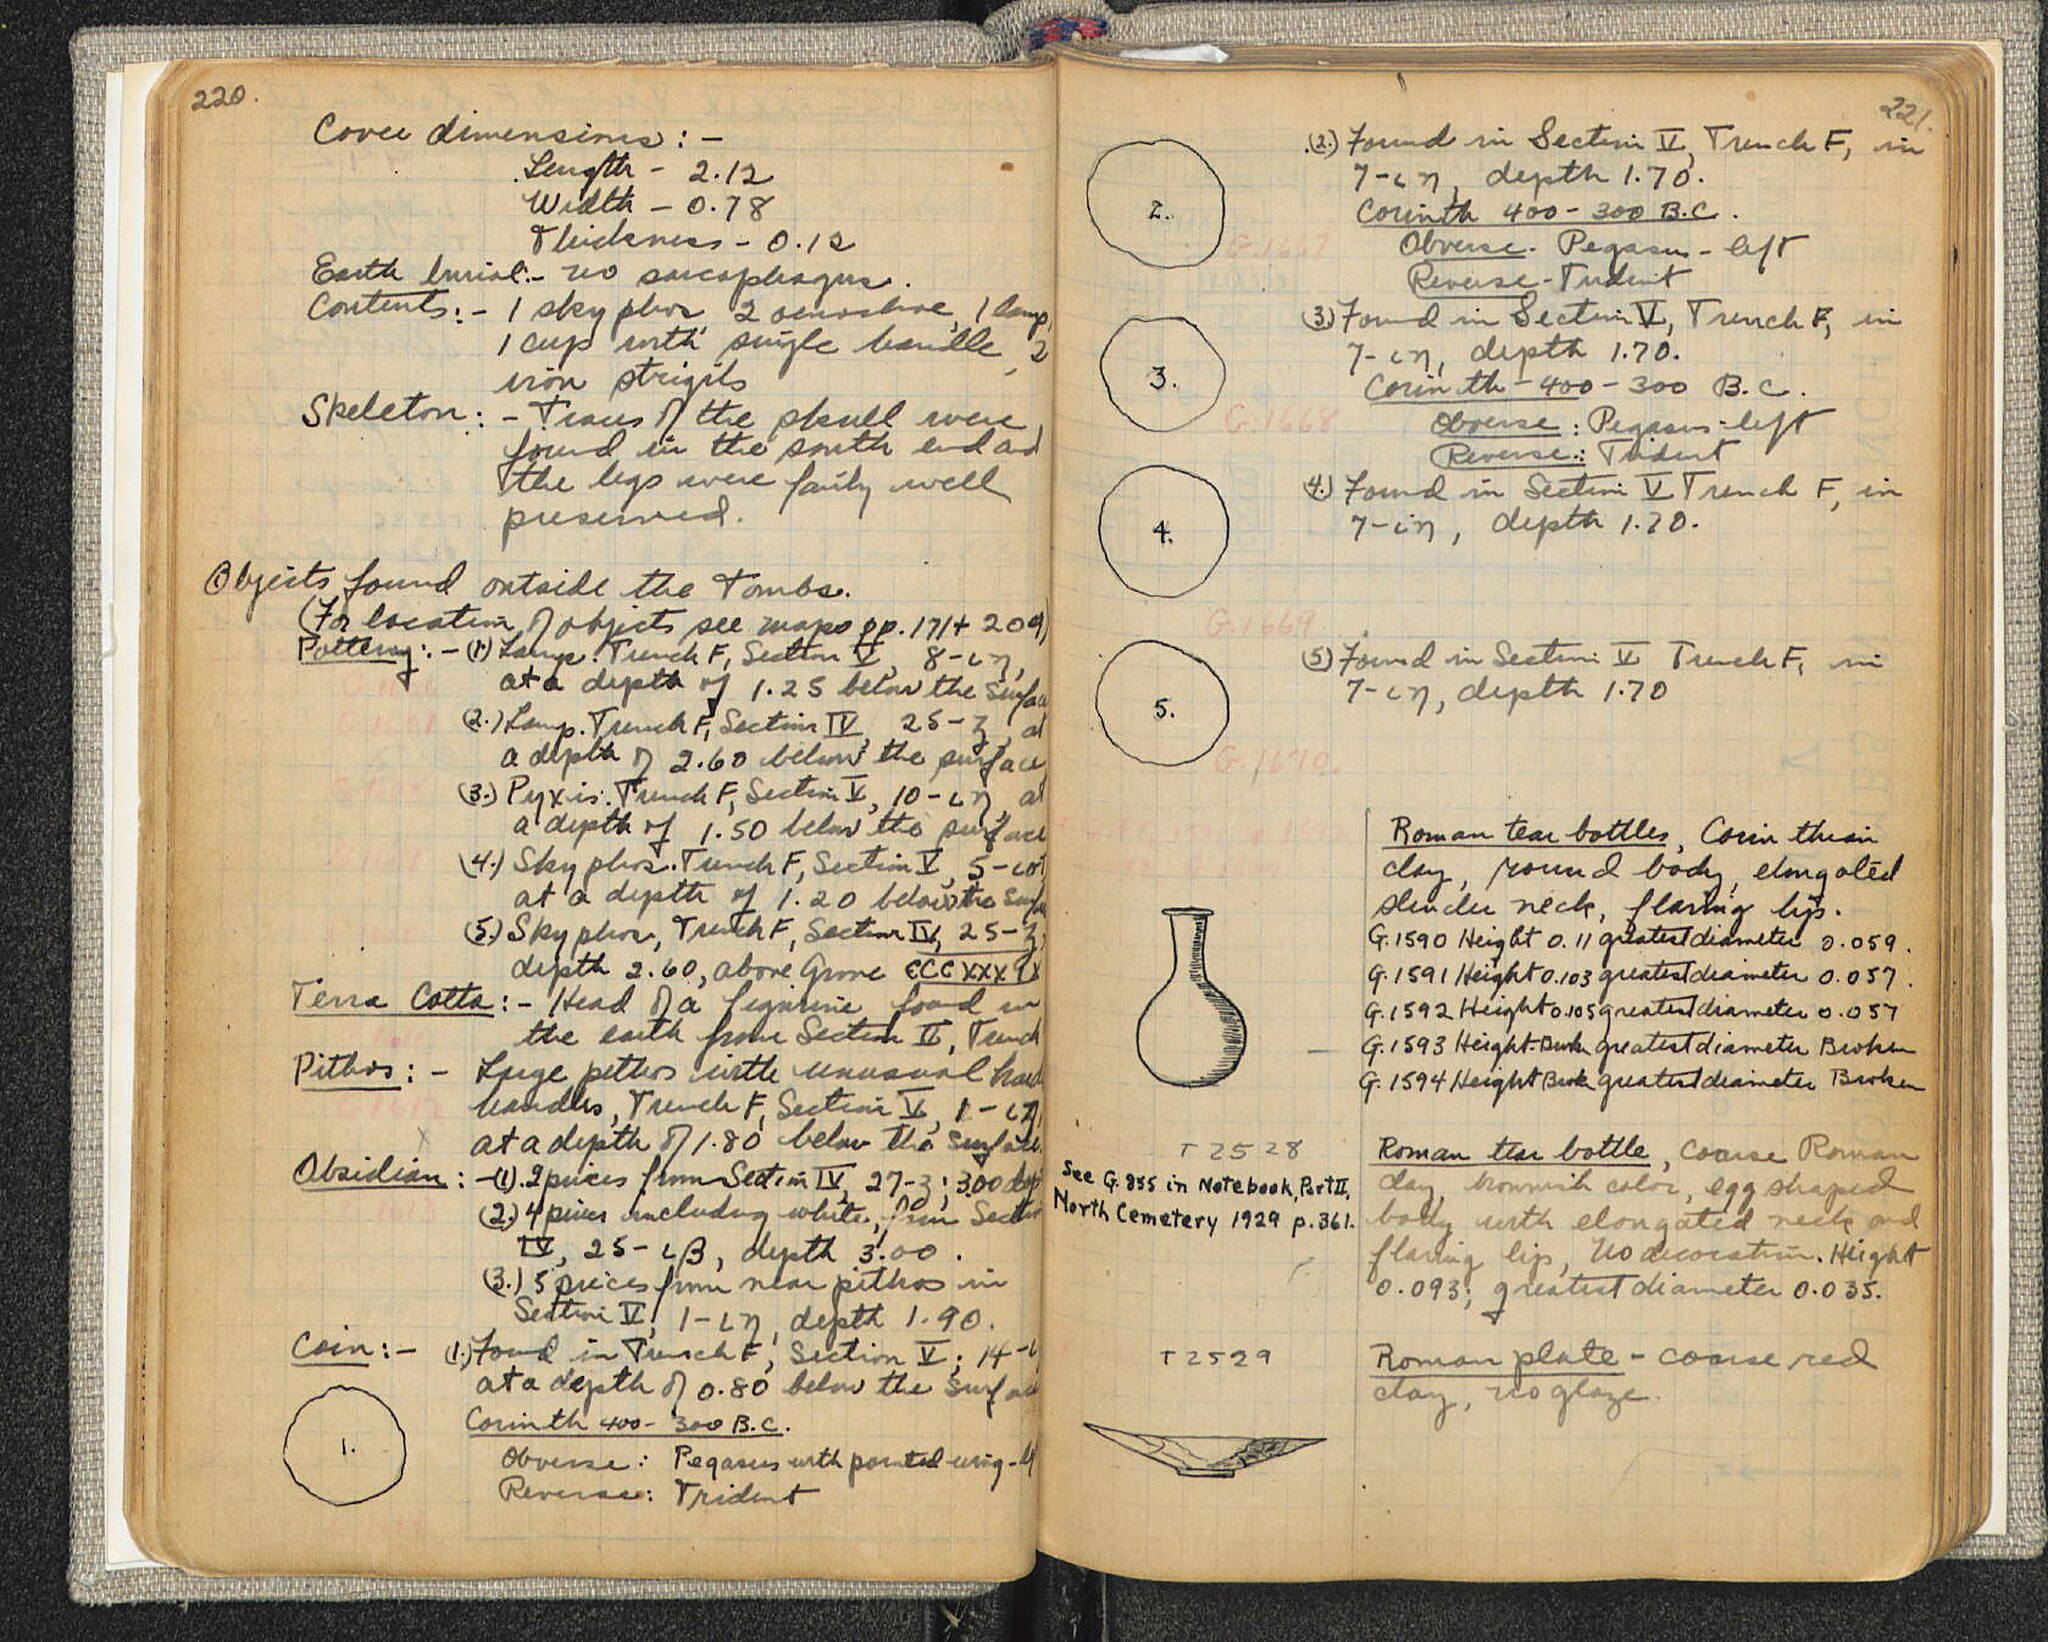 220.
Cover dimensions: -
Length - 2.12
Width - 0.78
Thickness - 0.12
Earth burial:- no sarcophagus.
Contents:- 1 skyphos, 2 oenochoe, 1 lamp,
1 cup with single handle, 2
iron strigils
Skeleton: - Traces of the skull were
found in the south end and
the legs were fairly well
preserved.
Objects found outside the Tombs.
(For location of objects see maps pp. 171 + 209)
Pottery:- (1.) Lamp. Trench F, Section V, 8-ιη,
at a depth of 1.25 below the surface
(2.) Lamp. Trench F, Section IV, 25-ζ, at
a depth of 2.60 below the surface
(3.) Pyxis. Trench F, Section V, 10-ιη, at
a depth of 1.50 below the surface
(4.) Skyphos. Trench F, Section V, 5-
at a depth of 1.20 below the surface
(5.) Skyphos, Trench F, Section IV, 25-ζ,
depth 2.60, above Grave CCCXXXIX
Terra Cotta:- Head of a figurine found in
the earth from Section II, Trench
Pithos: - Large pithos with unusual
handles, Trench F, Section V, 1-ιη,
at a depth of 1.80 below the surface.
Obsidian: -(1). 2 pieces from Section IV, 27-ζ; 3.00 deep
(2.) 4 pieces including white, from Section
IV, 25-ιβ, depth 3.00.
(3.) 5 pieces from near pithos in
Section V, 1-ιη, depth 1.90.
Coin:- (1.) Found in Trench F, Section V; 14-
at a depth of 0.80 below the surface
Corinth 400-300 B.C.
Obverse: Pegasus with pointed wing-
Reverse: Trident
1.
221.
(2.) Found in Section V, Trench F, in
7-ιη, depth 1.70.
Corinth 400-300 B.C.
Obverse. Pegasus-left
Reverse-Trident
2.
G.1667
(3.) Found in Section V, Trench F, in
7-ιη, depth 1.70.
Corinth-400-300 B.C.
Obverse: Pegasus-left
Reverse: Trident
3.
G.1668
(4.) Found in Section V Trench F, in
7-ιη, depth 1.70.
4.
G.1669
(5) Found in Section V Trench F, in
7-ιη, depth 1.70
5.
G.1670.
Roman tear bottles, Corinthian
clay, round body, elongated
slender neck, flaring lips.
G.1590 Height 0.11 greatest diameter 0.059.
G.1591 Height 0.103 greatest diameter 0.057.
G.1592 Height 0.105 greatest diameter 0.057
G.1593 Height-Broken greatest diameter Broken
G.1594 Height Broken greatest diameter Broken
T 2528
See G.855 in Notebook, Part II,
North Cemetery 1929 p.361.
Roman tear bottle, coarse Roman
clay, brownish color, egg shaped
body with elongated neck and
flaring lip, No decoration. Height
0.093; greatest diameter 0.035.
T 2529
Roman plate - coarse red
clay, no glaze.